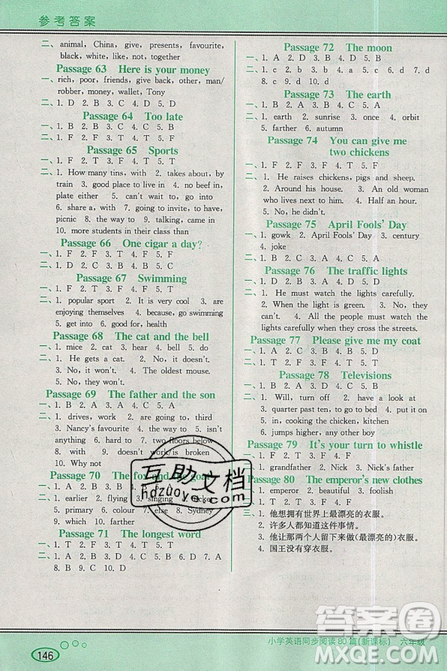 参考答案
二、animal, China, give, presents, favourite,
black, white, like, not, together
Passage 63 Here is your money
一、poor, rich, friends, give-gave, old, other,
robber, money, wallet, Tony
二、1. D 2. C 3. C 4. D 5. D
Passage 64 Too late
一、1. B 2. B 3. C 4. A 5. C
二、1. F 2. F 3. F 4. T 5. F
Passage 65 Sports
一、1. F 2. T 3. F 4. F 5. T
二、1. How many tins, with 2. takes, about, by
taxi 3. find a place, living 4. no beef in,
plate of 5. going to visit, next year
6. would, to write, invite, have, to,
picnic 8. the way to 9. talking, came in
10. more students in their class than
Passage 66 One cigar a day?
一、1. F 2. F 3. T 4. F 5. F
二、1. D 2. C 3. B 4. A 5. D
Passage 67 Swimming
一、1. F 2. F 3. T 4. T 5. F
二、1. popular sport 2. It is very cool
3. difficult 4. because, go swimming
5. are, to 6. good for, health
Passage 68 The cat and the bell
一、1. mice 2. cat 3. hear 4. afraid 5. bell
二、1. He gets a cat. 2. No, it doesn't.
3. No, it doesn't. 4. A bell.
5. No, it doesn't.
Passage 69 The father and the son
一、1. B 2. A 3. A 4. B 5. D
二、1. drives, work 2. are, going to
3. Nancy's favourite 4. want to 5. isn't
anything 6. why 7. two floors below
8. went to, with 9. but, both of
10. Why not
Passage 70
一、1. earlier 2. flying 3. singing
二、1. primary 2. colour
5. because of
Passage 71 The longest word
一、1. D 2. B 3. D 4. A 5. D 6. A
7. D 8. B 9. B 10. C
二、1. F 2. T 3. T 4. F 5. F
Passage 72 The moon
一、1. A 2. D 3. D 4. D 5. B
二、1. c 2. b 3. d 4. a 5. e
Passage 73 The earth
一、1. earth 2. sunrise 3. once 4. west
5. orbit
二、1. far 2. sun 3. night 4. oldest
5. farther 6. autumn
Passage 74 You can give me
two chickens
一、1. F 2. F 3. F 4. F 5. F
二、1. He raises chickens, pigs and sheep.
2. Around his house. 3. An old woman
who lives next to him. 4. Half an hour.
5. No, he didn't.
Passage 75 April Fools' Day
一、1. gowk 2. April Fools' Day 3. cuckoo
4. noon
二、1. F 2. F 3. T 4. F 5. F
Passage 76 The traffic lights
一、1. T 2. F 3. F 4. T 5. F
二、1. He must watch the lights carefully.
2. When the light is green. 3. No, it
doesn't. 4. Yellow. 5. All must watch
the lights carefully when crossing the
road.
Passage 77 Please give me my coat
一、1. C 2. B 3. A 4. B 5. D
二、1. F 2. F 3. F 4. F 5. F
Passage 78 Televisions
一、1. F 2. F 3. T 4. T 5. T
二、1. interested in 2. Look out of 3. at a
quarter past ten to bed 4. sit on, cooking
5. jumps higher than any other boy
Passage 79 It's your turn to whistle
一、1. grandma 2. Nick 3. Nick's father
Passage 80 The emperor's new clothes
一、1. F 2. T 3. F 4. F 5. F
二、1. 他想拥有“最漂亮的衣服。
2. 许多人都知道这件事情。
3. 他没看见“最漂亮的衣服”。
4. 国王没有穿衣服。
互助文档
146
小学英语同步阅读80篇(新课标) 六年级
答案圈
MXQE.COM